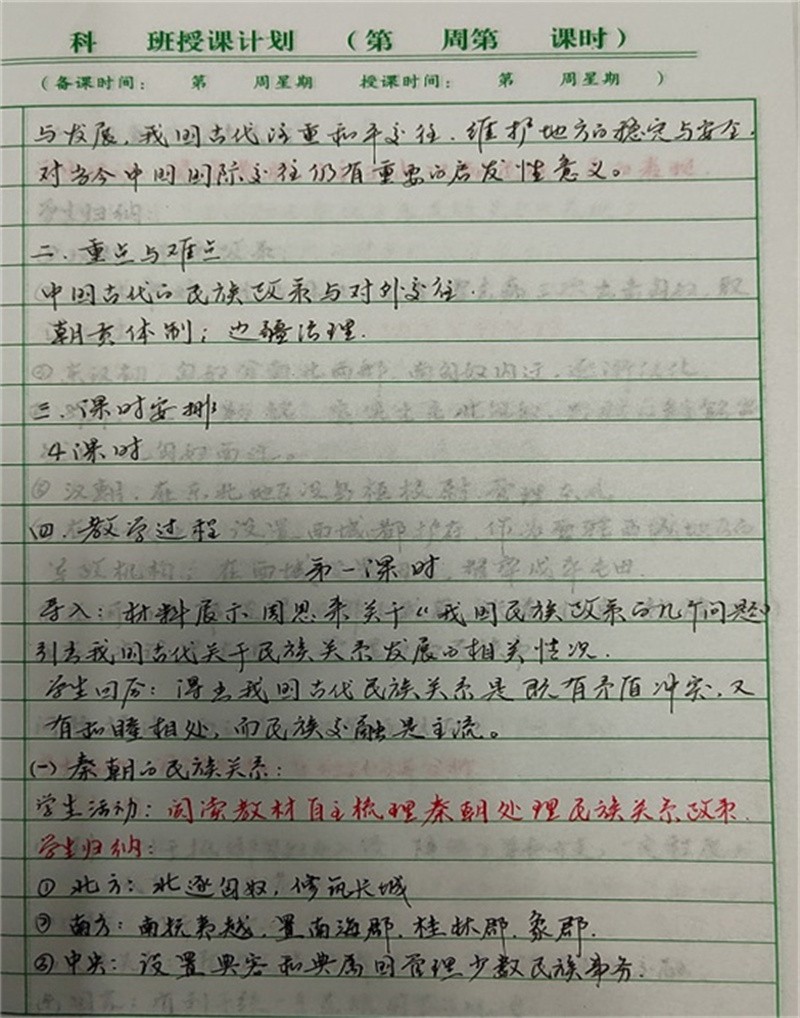 科 班授课计划 （第 周第 课时）
（备课时间： 第 周星期 授课时间： 第 周星期 ）
与发展，我国古代注重和平交往，维护地方的稳定与安全，
对当今中国国际交往仍有重要的启发性意义。
二、重点与难点
中国古代的民族政策与对外交往.
朝贡体制；边疆治理.
三、课时安排
4课时
四、教学过程
第一课时
导入：材料展示周恩来关于《我国民族政策的几个问题》
引出我国古代关于民族关系发展的相关情况.
学生回答：得出我国古代民族关系是既有矛盾冲突，又
有和睦相处，而民族交融是主流。
(一) 秦朝的民族关系：
学生活动：阅读教材自主梳理秦朝处理民族关系政策.
学生归纳：
① 北方：北逐匈奴，修筑长城
② 南方：南抚夷越，置南海郡、桂林郡、象郡.
③ 中央：设置典客和典属国管理少数民族事务.